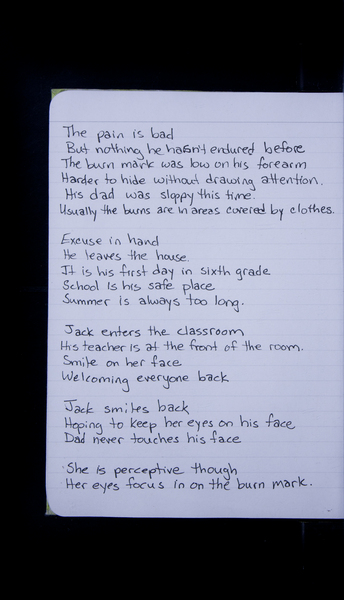 The pain is bad
But nothing he hasn't endured before
The burn mark was low on his forearm
Harder to hide without drawing attention.
His dad was sloppy this time.
Usually the burns are in areas covered by clothes.
Excuse in hand
He leaves the house.
It is his first day in sixth grade
School is his safe place
Summer is always too long.
Jack enters the classroom
His teacher is at the front of the room.
Smile on her face
Welcoming everyone back
Jack smiles back
Hoping to keep her eyes on his face
Dad never touches his face
She is perceptive though
Her eyes focus in on the burn mark.